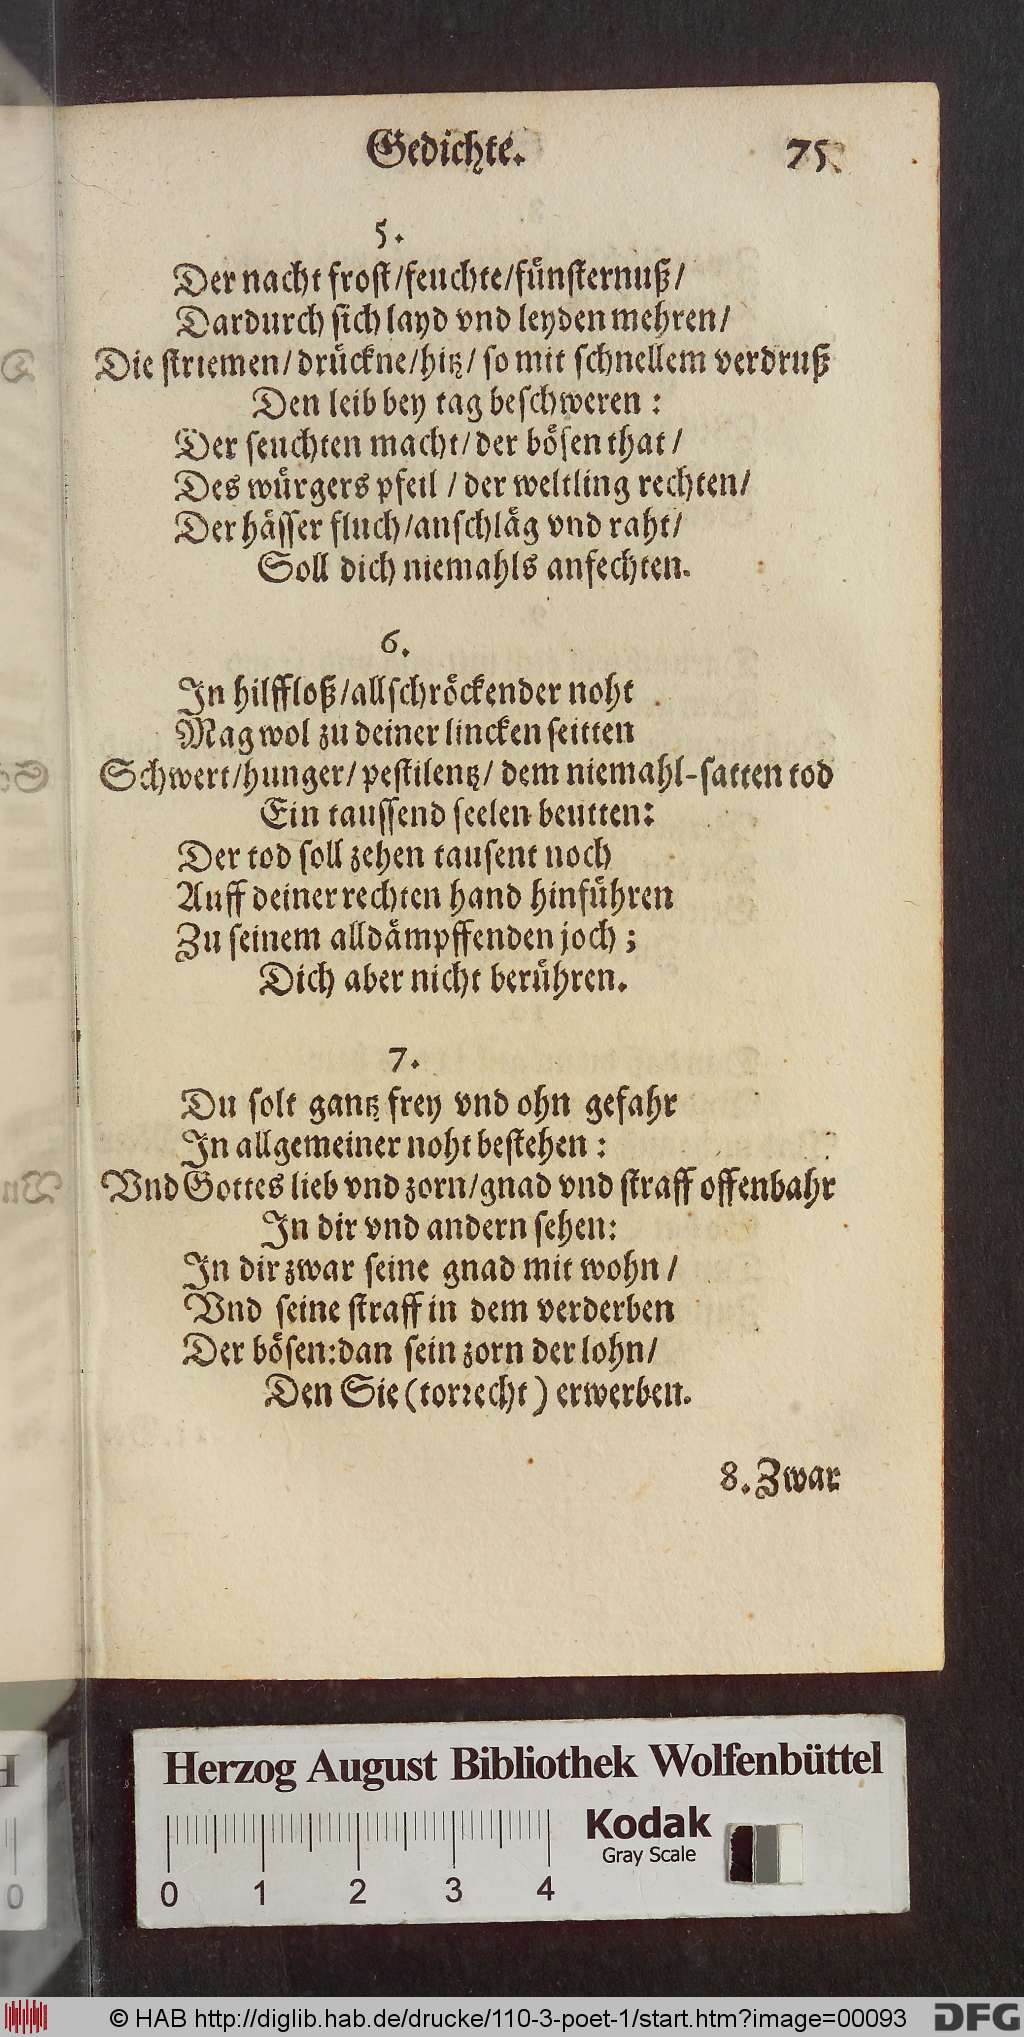 Gedichte. 75
5.
Der nacht frost/feuchte/fünsternuß/
Dardurch sich layd vnd leyden mehren/
Die striemen/ drückne/hitz/ so mit schnellem verdruß
Den leib bey tag beschweren :
Der seuchten macht/ der bösen that /
Des würgers pfeil / der weltling rechten/
Der hässer fluch/anschläg vnd raht/
Soll dich niemahls anfechten.
6.
In hilffloß/allschröckender noht
Mag wol zu deiner lincken seitten
Schwert/hunger/ pestilentz/ dem niemahl-satten tod
Ein taussend seelen beutten:
Der tod soll zehen tausent noch
Auff deiner rechten hand hinführen
Zu seinem alldämpffenden joch ;
Dich aber nicht berühren.
7.
Du solt gantz frey vnd ohn gefahr
In allgemeiner noht bestehen :
Vnd Gottes lieb vnd zorn/gnad vnd straff offenbahr
In dir vnd andern sehen:
In dir zwar seine gnad mit wohn /
Vnd seine straff in dem verderben
Der bösen:dan sein zorn der lohn/
Den Sie (torrecht) erwerben.
8. Zwar
Herzog August Bibliothek Wolfenbüttel
Kodak
Gray Scale
0 1 2 3 4
© HAB http://diglib.hab.de/drucke/110-3-poet-1/start.htm?image=00093
DFG